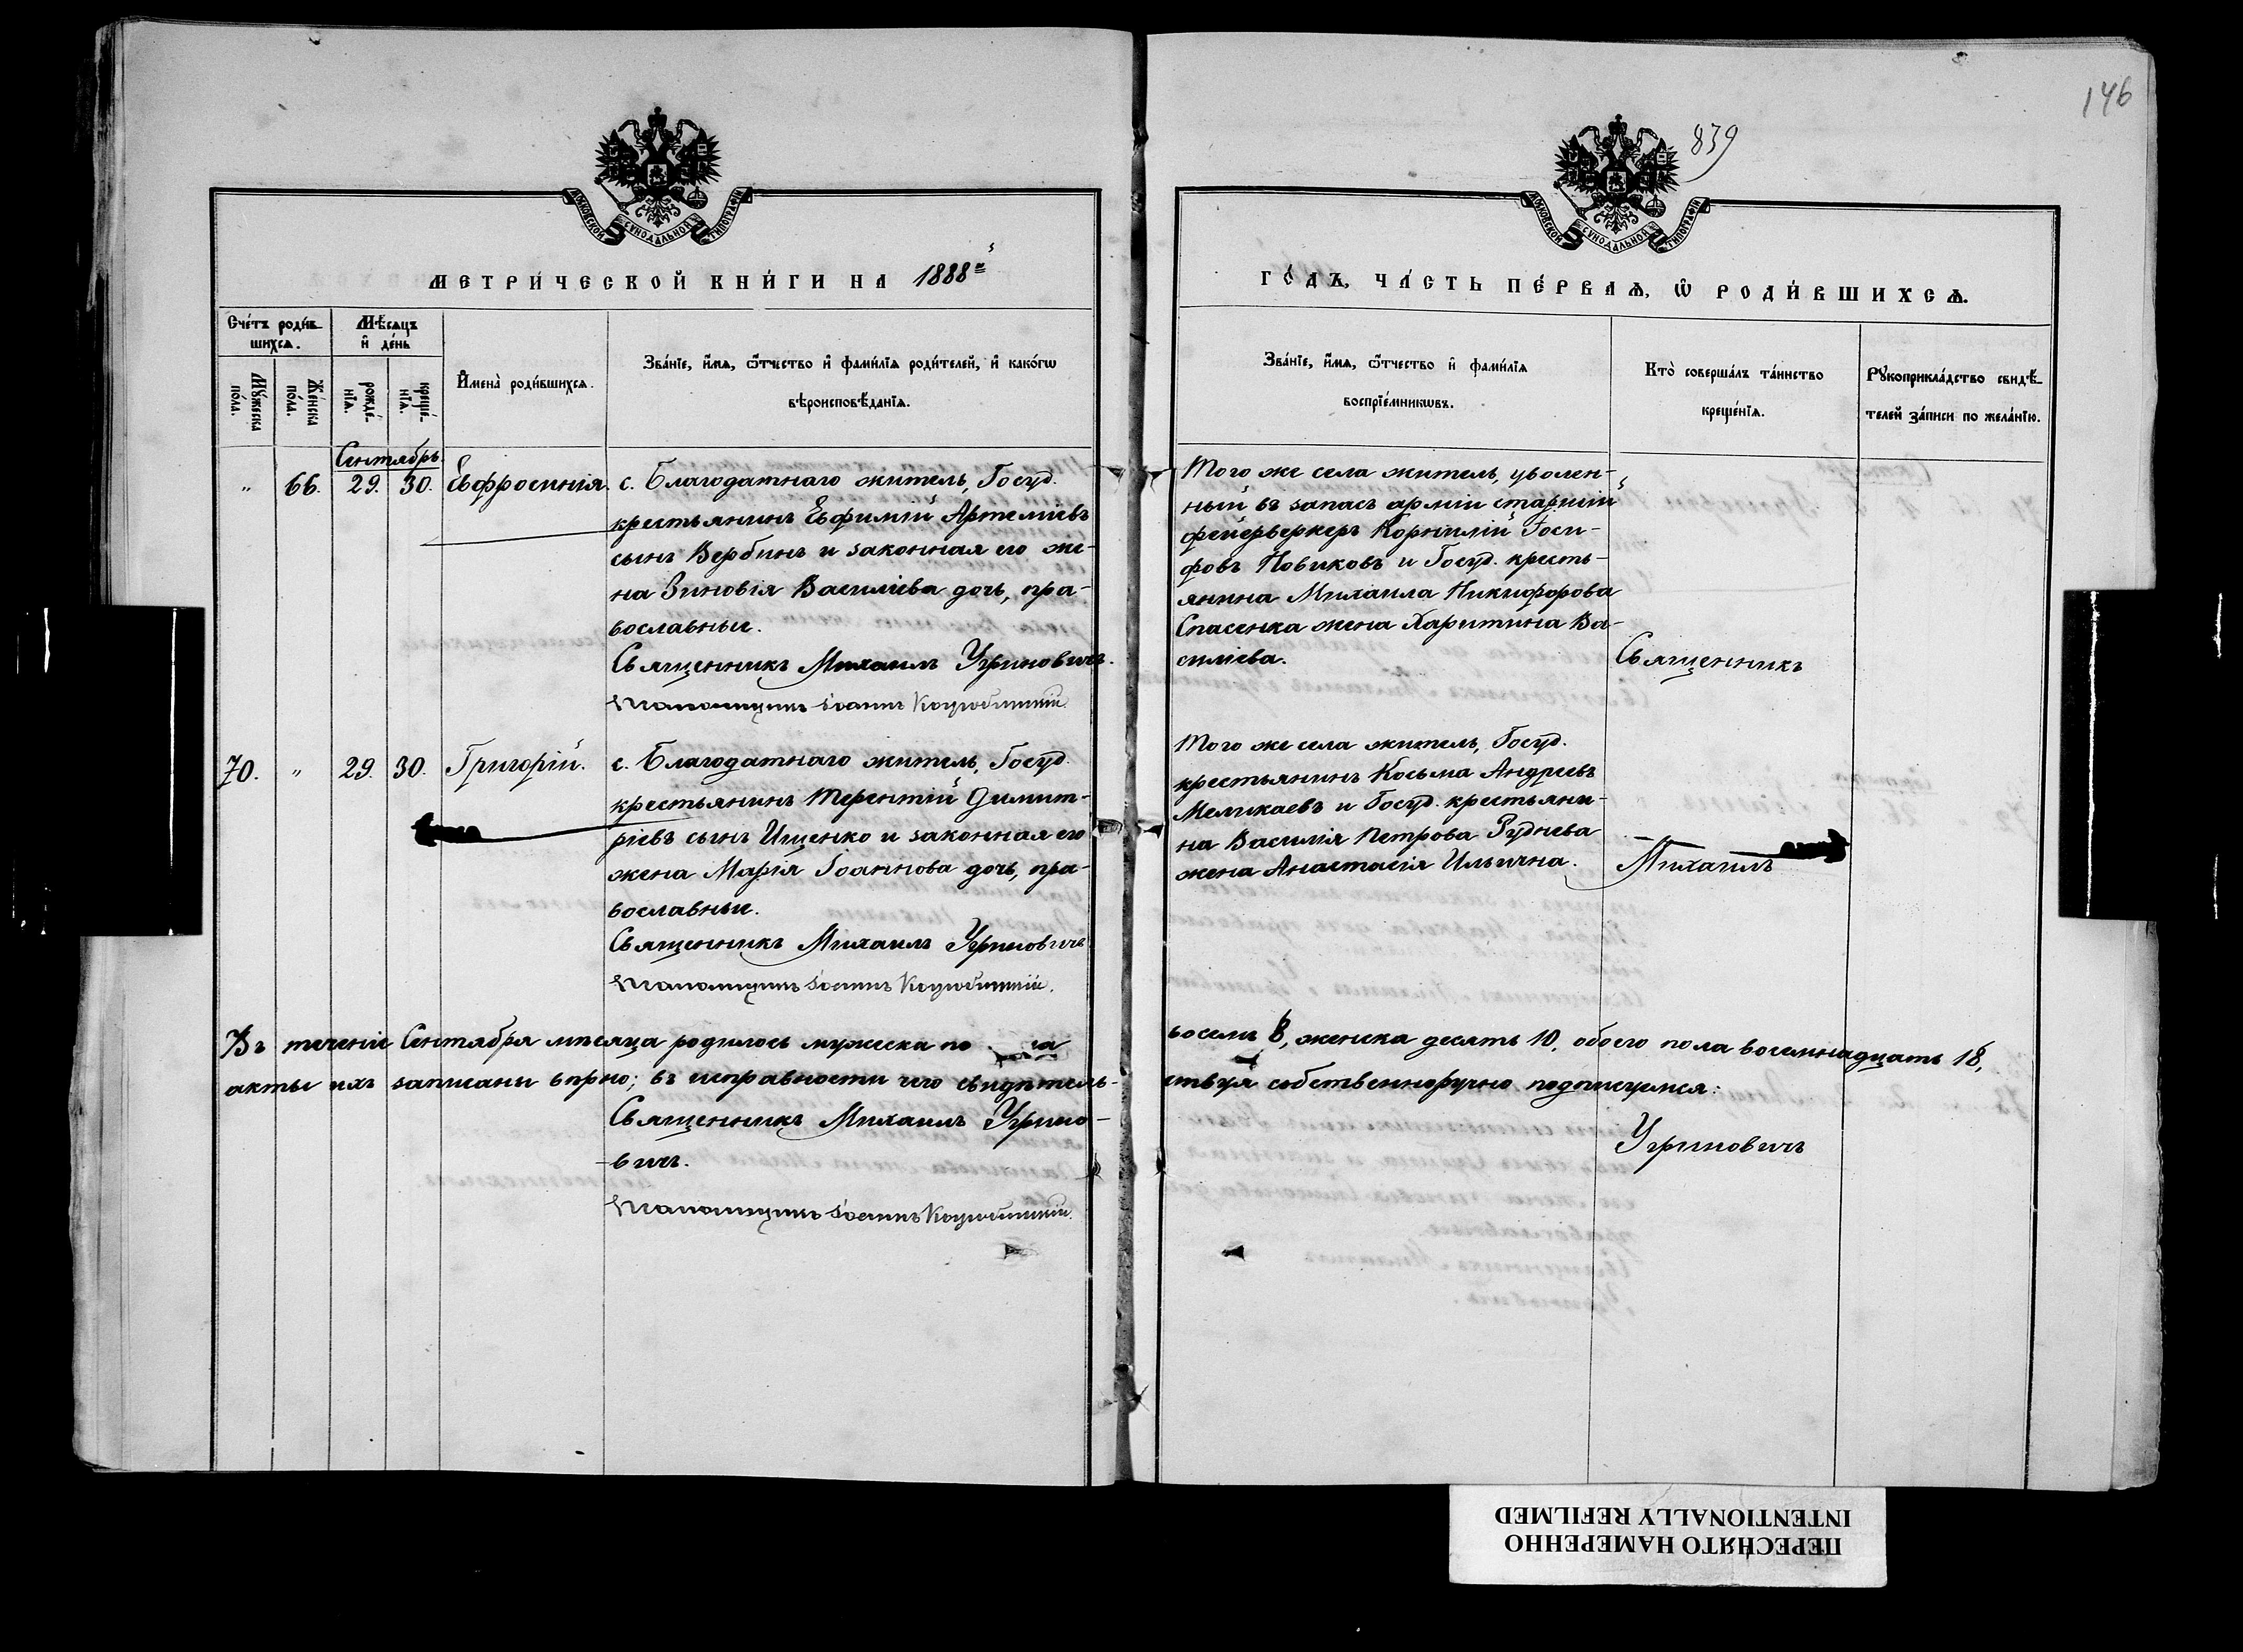 146
839
МОСКОВСКОЙ СУНОДАЛЬНОЙ ТИПОГРАФІИ
МОСКОВСКОЙ СУНОДАЛЬНОЙ ТИПОГРАФІИ
МЕТРИ́ЧЕСКОЙ КНИ́ГИ НА 1888й
ГО́ДЪ, ЧА́СТЬ ПЕ́РВАѦ, Ѡ РОДИ́ВШИХСѦ.
Сче́тъ роди́в-
шихсѧ.
Мѣ́сѧцъ
и҆ де́нь
Мꙋ́жеска
по́ла.
Же́нска
по́ла.
рожде́-
нїѧ.
креще́-
нїѧ.
И҆мена̀ роди́вшихсѧ.
Зва́нїе, и҆́мѧ, ѻ҆́тчество и҆ фами́лїѧ роди́телей, и҆ како́гѡ
вѣроисповѣ́данїѧ.
Зва́нїе, и҆́мѧ, ѻ҆́тчество и҆ фами́лїѧ
воспрїе́мникѡвъ.
Кто̀ соверша́лъ та́инство
креще́нїѧ.
Рꙋкоприкла́дство свидѣ́-
телей за́писи по жела́нїю.
Сентябрь.
" 66. 29. 30. Евфросинія.
с. Благодатнаго житель, Госуд.
крестьянинъ Евфимій Артеміевъ
сынъ Вербинъ и законная его же-
на Зиновія Василіева дочь, пра-
вославные.
Священникъ Михаилъ Угриновичъ.
Псаломщикъ Іоаннъ Коцюбинскій.
Того же села житель, уволен-
ный въ запасъ арміи старшій
фейерверкеръ Корнилій Іоси-
фовъ Новиковъ и Госуд. кресть-
янина Михаила Никифорова
Спасенка жена Харитина Ва-
силіева.
Священникъ
70. " 29. 30. Григорій.
с. Благодатнаго житель, Госуд.
крестьянинъ Терентій Димит-
ріевъ сынъ Ищенко и законная его
жена Марія Іоаннова дочь, пра-
вославные.
Священникъ Михаилъ Угриновичъ
Псаломщикъ Іоаннъ Коцюбинскій.
Того же села житель, Госуд.
крестьянинъ Косьма Андреевъ
Меликаевъ и Госуд. крестьяни-
на Василія Петрова Руднева
жена Анастасія Ильична.
Михаилъ
Въ теченіе Сентября мѣсяца родилось мужеска по ла восемь 8, женска десять 10, обоего пола восемнадцать 18,
акты ихъ записаны вѣрно; въ исправности чего свидѣтель- ствуя собственноручно подписуемся:
Священникъ Михаилъ Угрино-
вичъ.
Псаломщикъ Іоаннъ Коцюбинскій.
Угриновичъ
ПЕРЕСНЯТО НАМЕРЕННО
INTENTIONALLY REFILMED